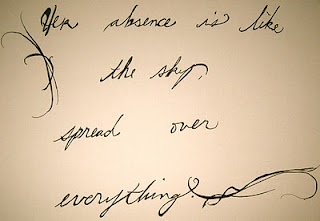 Her absence is like
the sky,
spread over
everything.